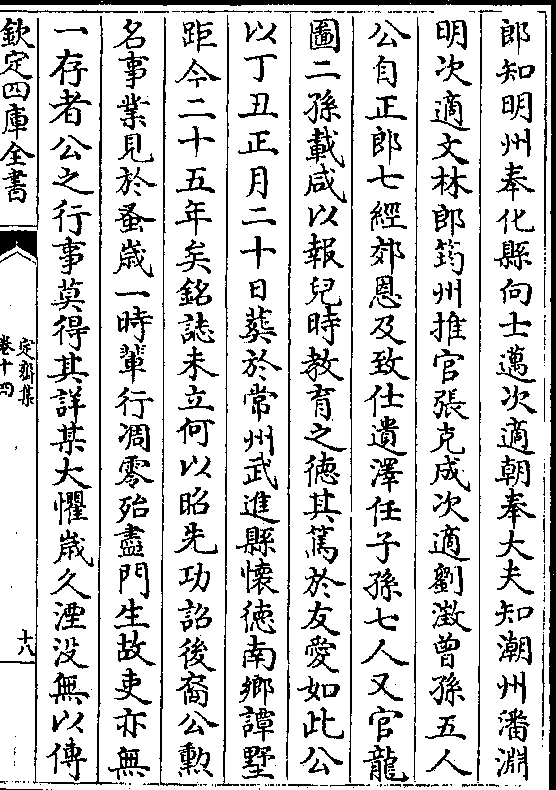 郎知明州奉化縣向士邁次適朝奉大夫知潮州潘淵
明次適文林郎筠州推官張克成次適劉澂曾孫五人
公自正郎七經郊恩及致仕遺澤任子孫七人又官龍
圖二孫載咸以報兒時教育之德其篤於友愛如此公
以丁丑正月二十日葬於常州武進縣懷德南鄉譚墅
距今二十五年矣銘誌未立何以昭先功詔後裔公勲
名事業見於蚤歲一時輩行凋零殆盡門生故吏亦無
一存者公之行事莫得其詳某大懼歲久湮没無以傳
欽定四庫全書
定齋集
卷十四
十八